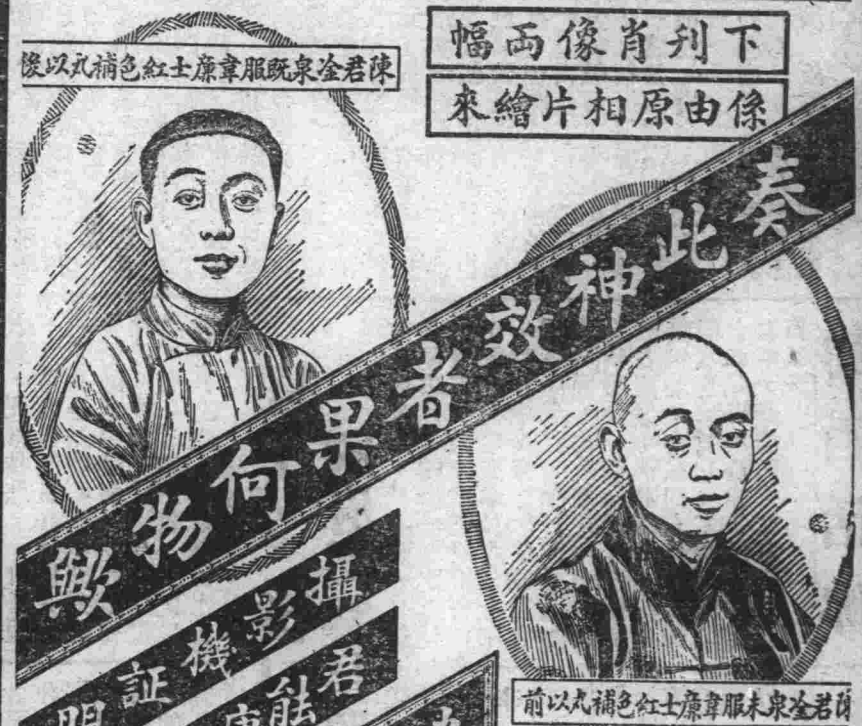 下刋肖像両幅
係由原相片繪來
陳君泠泉既服韋廉士紅色補丸以後
奏此神效者果何物歟
攝影機証明
君能康
陳君泠泉未服韋廉士紅色補丸以前